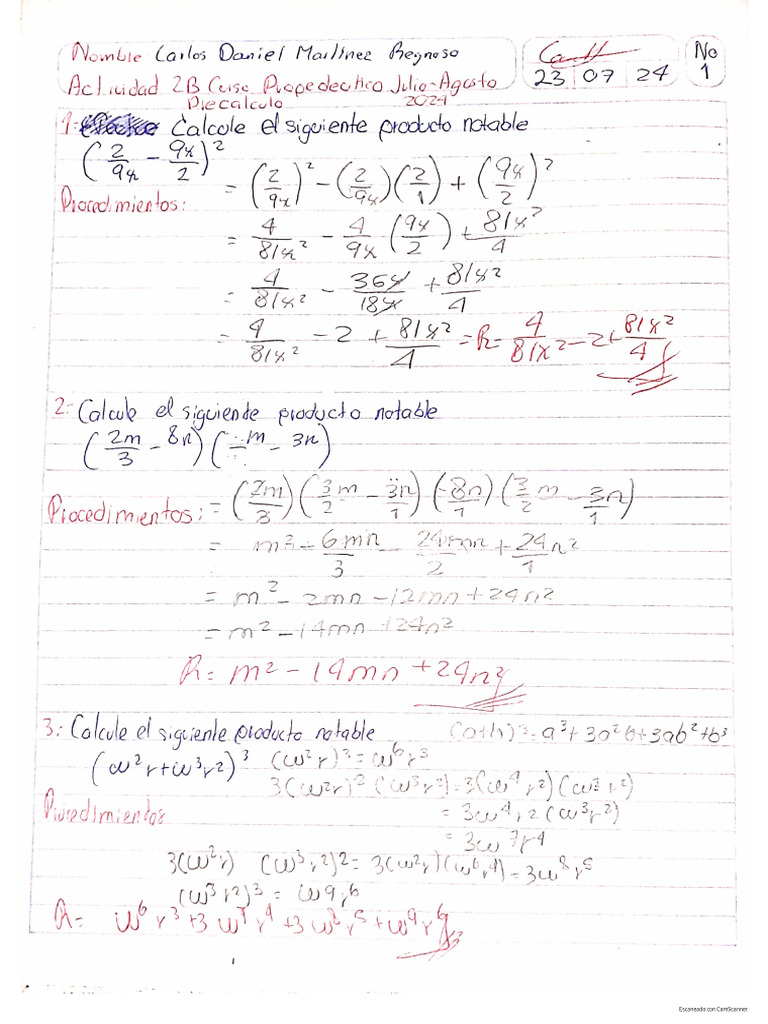 Nombre Carlos Daniel Martinez Reynoso
23 07 24
No 1
Actividad 2B Curso Propedeutico Julio-Agosto
Precalculo 2024
1.- Calcule el siguiente producto notable
(2/9x - 9x/2)²
= (2/9x)² - (2/9x)(2/1) + (9x/2)²
Procedimientos:
= 4/81x² - 4/9x (9x/2) + 81x²/4
= 4/81x² - 36x/18x + 81x²/4
= 4/81x² - 2 + 81x²/4 = R= 4/81x² - 2 + 81x²/4
2.- Calcule el siguiente producto notable
(2m/3 - 8n)( m - 3n)
Procedimientos: = (2m/3)(3/2 m - 3n/1)(-8n/1)(3/2 m - 3n/1)
= m² - 6mn/3 - 24mn/2 + 24n²/1
= m² - 2mn - 12mn + 24n²
= m² - 14mn + 24n²
R= m² - 14mn + 24n²
3.- Calcule el siguiente producto notable (a+b)³ = a³+3a²b+3ab²+b³
(w²r+w³r²)³ (w²r)³ = w⁶r³
3(w²r)² (w³r²) = 3(w⁴r²)(w³r²)
Procedimientos
= 3w⁴r²(w³r²)
= 3w⁷r⁴
3(w²r) (w³r²)2 = 3(w²r)(w⁶r⁴) = 3w⁸r⁵
(w³r²)³ = w9r⁶
R= w⁶r³+3w⁷r⁴+3w⁸r⁵+w⁹r⁶
Escaneado con CamScanner